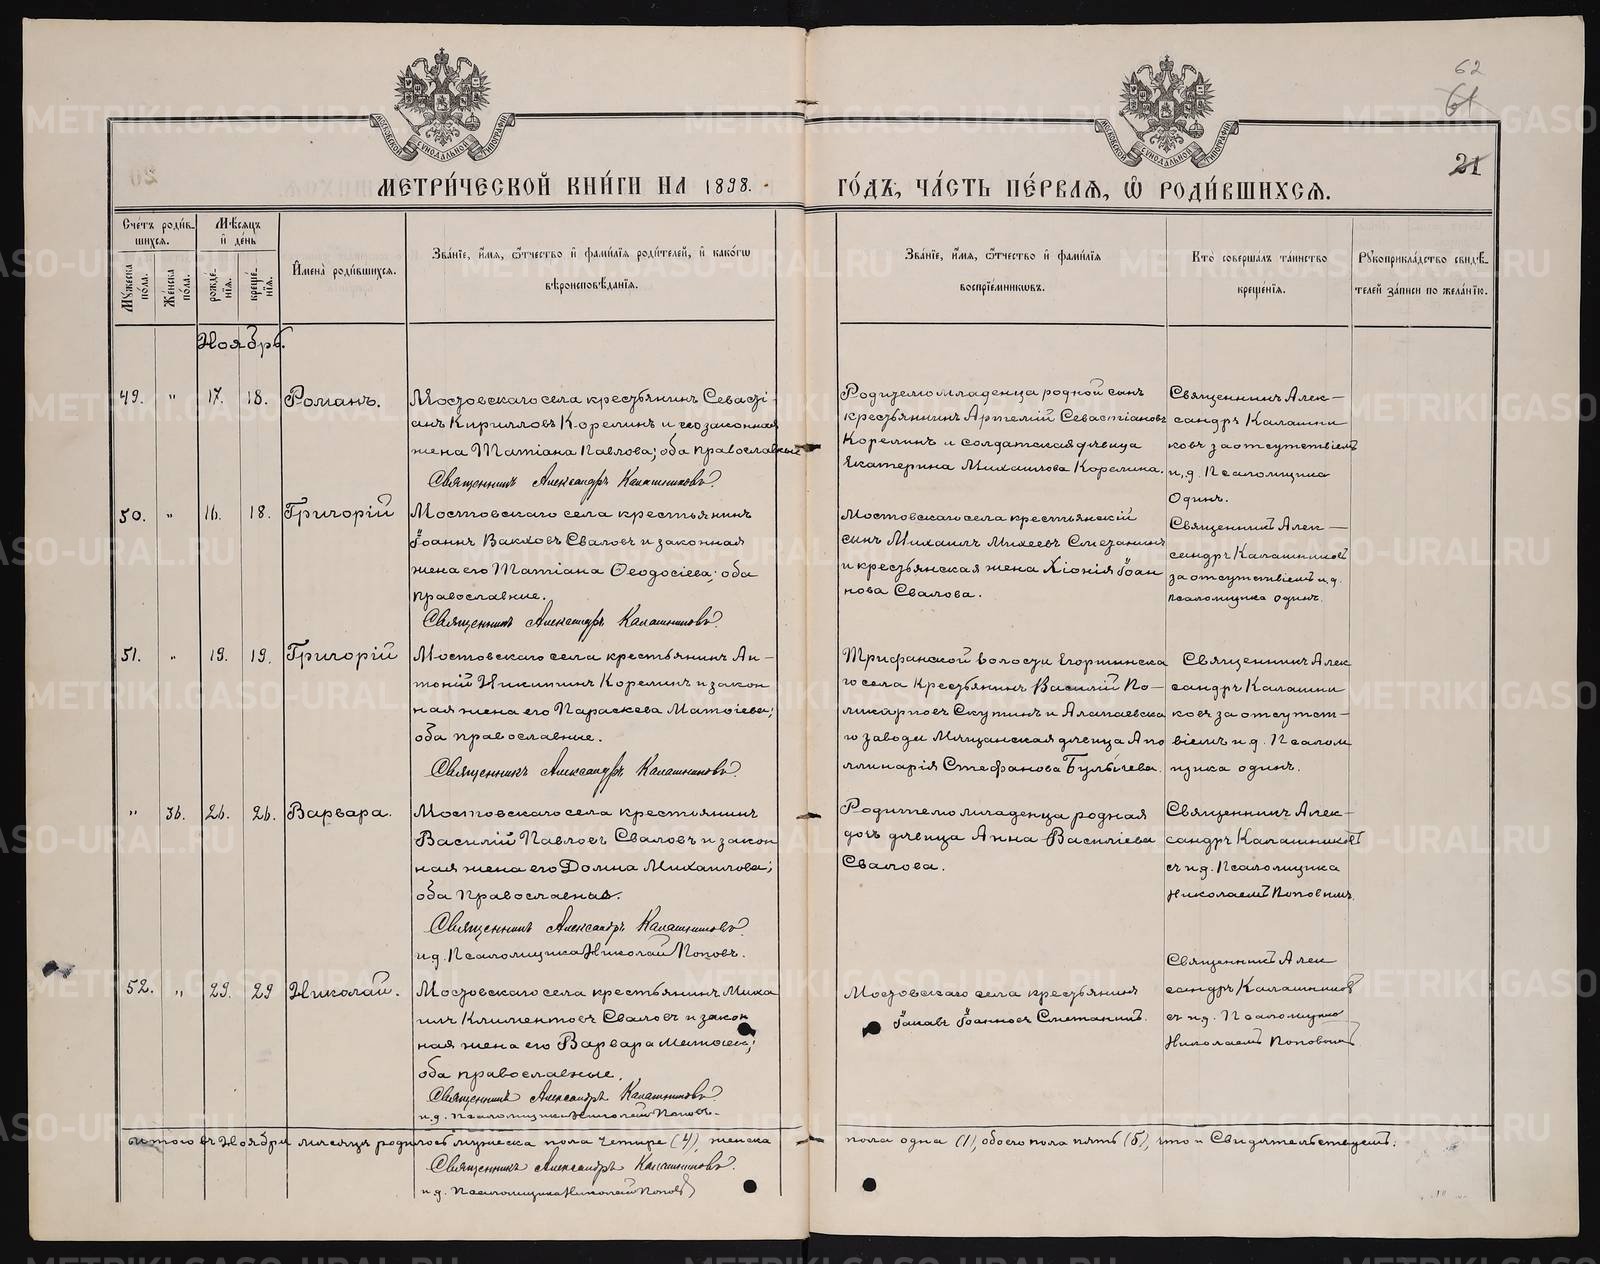 62
61
21
МОСКОВСКОЙ СѴНОДАЛЬНОЙ ТИПОГРАФІИ
МОСКОВСКОЙ СѴНОДАЛЬНОЙ ТИПОГРАФІИ
МЕТРИ́ЧЕСКОЙ КНИ́ГИ НА 1898. ГО́ДЪ, ЧА́СТЬ ПЕ́РВАЯ, Ѿ РОДИ́ВШИХСЯ.
Сче́тъ роди́в-
шихся.
Му́жеска по́ла.
Же́нска по́ла.
Мѣ́сяцъ
и҆ де́нь
рожде́-
нія.
креще́-
нія.
И҆мена̀ роди́вшихся.
Зва́ніе, и҆́мя, ѻ҆́тчество и҆ фами́лія роди́телей, и҆ како́гѡ
вѣроисповѣ́данія.
Зва́ніе, и҆́мя, ѻ҆́тчество и҆ фами́лія
воспрїе́мникѡвъ.
Кто̀ соверша́лъ та́инство
креще́нія.
Рꙋкоприкла́дство свидѣ́-
телей за́писи по жела́нію.
Ноябрь.
49. " 17. 18. Романъ.
Мостовскаго села крестьянинъ Севасті-
анъ Кирилловъ Корелинъ и его законная
жена Татіана Павлова; оба православные
Священникъ Александръ Калашниковъ.
Родителю младенца родной сынъ
крестьянинъ Артемій Севастіановъ
Корелинъ и солдатская дѣвица
Екатерина Михаилова Корелина.
Священникъ Алек-
сандръ Калашни
ковъ за отсутствіемъ
и.д. Псаломщика
Одинъ.
50. " 16. 18. Григорій
Мостовскаго села крестьянинъ
Іоаннъ Вакховъ Сваловъ и законная
жена его Татіана Ѳеодосіева; оба
православные.
Священникъ Александръ Калашниковъ.
Мостовскаго села крестьянскій
сынъ Михаилъ Михеевъ Сметанинъ
и крестьянская жена Хіонія Іоан
нова Свалова.
Священникъ Алек-
сандръ Калашниковъ
за отсутствіемъ и.д.
псаломщика одинъ.
51. " 19. 19. Григорій
Мостовскаго села крестьянинъ Ан-
тоній Никитинъ Корелинъ и закон
ная жена его Параскева Матѳіева;
оба православные.
Священникъ Александръ Калашниковъ.
Трифанской волости Егоршинска
го села Крестьянинъ Василій По-
ликарповъ Скутинъ и Алапаевска
го завода Мѣщанская дѣвица Апо
ллинарія Стефанова Булычева.
Священникъ Алек
сандръ Калашни
ковъ за отсутст-
віемъ и.д. Псалом
щика одинъ.
" 36. 26. 26. Варвара.
Мостовскаго села крестьянинъ
Василій Павловъ Сваловъ и закон
ная жена его Домна Михаилова;
оба Православные.
Священникъ Александръ Калашниковъ.
и.д. Псаломщика Николай Поповъ.
Родителю младенца родная
дочь дѣвица Анна Васильева
Свалова.
Священникъ Алек-
сандръ Калашниковъ
съ и.д. Псаломщика
Николаемъ Поповымъ.
52. " 29. 29 Николай.
Мостовскаго села крестьянинъ Миха
илъ Климентовъ Сваловъ и закон
ная жена его Варвара Матѳіева;
оба православные.
Священникъ Александръ Калашниковъ.
и.д. Псаломщика Николай Поповъ.
Мостовскаго села крестьянинъ
Іаковъ Іоанновъ Сметанинъ.
Священникъ Алек
сандръ Калашниковъ
съ и.д. Псаломщика
Николаемъ Поповымъ
Итого въ Ноябрѣ мѣсяцѣ родилось мужеска пола четыре (4), женска пола одна (1), обоего пола пять (5), что и Свидѣтельствуемъ.
Священникъ Александръ Калашниковъ.
и.д. Псаломщика Николай Поповъ